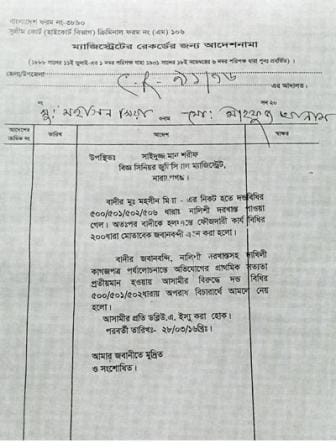 বাংলাদেশ ফরম নং-৩৮৯০
সুপ্রীম কোর্ট (হাইকোর্ট বিভাগ) ক্রিমিনাল ফরম নং (এম) ১০৬
ম্যাজিস্ট্রেটের রেকর্ডের জন্য আদেশনামা
জেলা/উপজেলা এর আদালত।
নং সন ২০
মু: মহসিন মিয়া বনাম মো:
আদেশের ক্রমিক নং তারিখ আদেশ স্বাক্ষর
উপস্থিতঃ
বিজ্ঞ সিনিয়র ম্যাজিস্ট্রেট,
বাদীর মুঃ মহসীন মিয়া - এর নিকট হতে দন্ডবিধির
৫০০/৫০১/৫০২/৫০৬ ধারায় নালিশী দরখাস্ত পাওয়া
গেল। অতঃপর বাদীকে ফৌজদারী কার্য বিধির
২০০ধারা মোতাবেক জবানবন্দী করা হলো।
বাদীর জবানবন্দি, নালিশী দরখাস্তসহ দাখিলী
কাগজপত্র পর্যালোচনান্তে অভিযোগের প্রাথমিক সত্যতা
প্রতীয়মান হওয়ায় আসামীর বিরুদ্ধে দন্ড বিধির
৫০০/৫০১/৫০২ধারায় অপরাধ বিচারার্থে আমলে নেয়
হলো।
আসামীর প্রতি ডব্লিউ.এ. ইস্যু করা হোক।
পরবর্তী তারিখঃ- ২৮/০৩/১৬খ্রিঃ।
আমার জবানীতে মুদ্রিত
ও সংশোধিত।